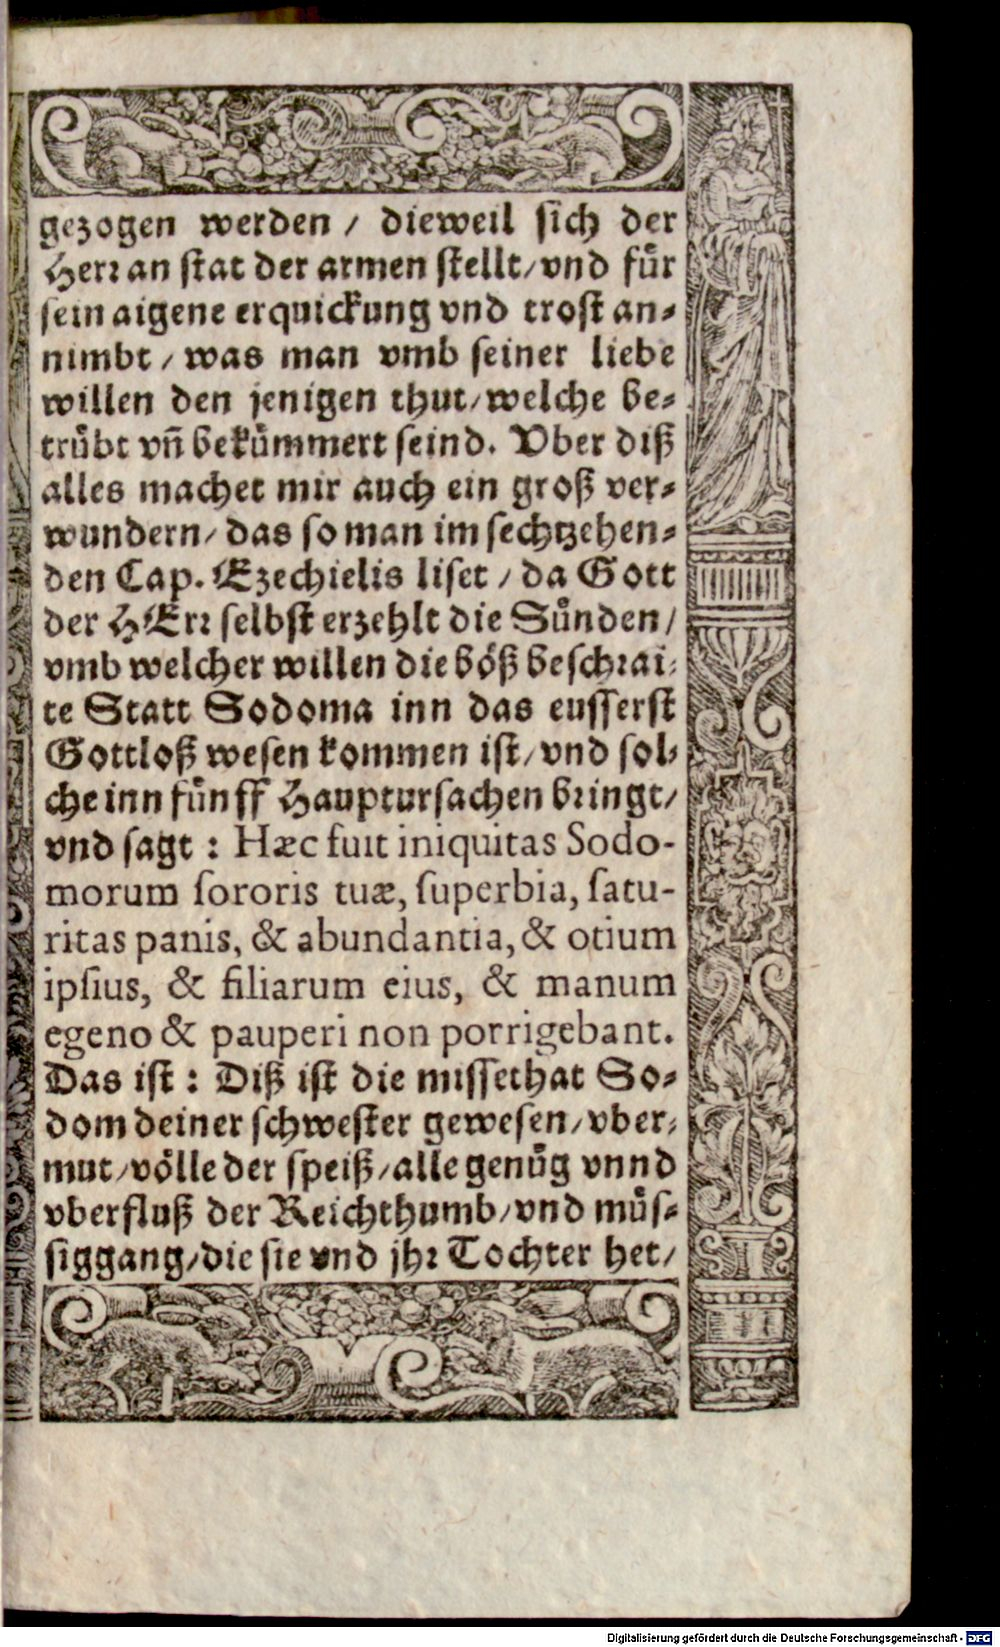 gezogen werden / dieweil sich der
Herr an stat der armen stellt/vnd fuͤr
sein aigene erquickung vnd trost an⸗
nimbt / was man vmb seiner liebe
willen den jenigen thut/welche be⸗
truͤbt vn̄ bekuͤmmert seind. Vber diß
alles machet mir auch ein groß ver⸗
wundern/ das so man im sechtzehen⸗
den Cap. Ezechielis liset / da Gott
der HErr selbst erzehlt die Suͤnden/
vmb welcher willen die boͤß beschrai⸗
te Statt Sodoma inn das eusserst
Gottloß wesen kommen ist/vnd sol⸗
che inn fuͤnff Hauptursachen bringt/
vnd sagt : Hæc fuit iniquitas Sodo-
morum sororis tuæ, superbia, satu-
ritas panis, & abundantia, & otium
ipsius, & filiarum eius, & manum
egeno & pauperi non porrigebant.
Das ist : Diß ist die missethat So⸗
dom deiner schwester gewesen/vber⸗
mut/voͤlle der speiß/alle genuͤg vnnd
vberfluß der Reichthumb/vnd muͤs⸗
siggang/die sie vnd jhr Tochter het/
Digitalisierung gefördert durch die Deutsche Forschungsgemeinschaft - DFG